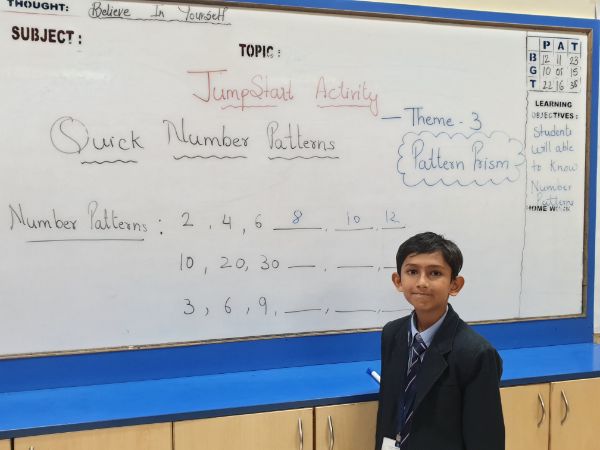 THOUGHT: Believe In Yourself
SUBJECT:
TOPIC:
JumpStart Activity
Quick Number Patterns
— Theme - 3
Pattern Prism
Number Patterns : 2, 4, 6 8, 10, 12
10, 20, 30 __, __, __
3, 6, 9, __, __, __
P A T
B 12 11 23
G 10 05 15
T 22 16 38
LEARNING
OBJECTIVES:
Students
will able
to know
Number
Patterns
HOME WORK